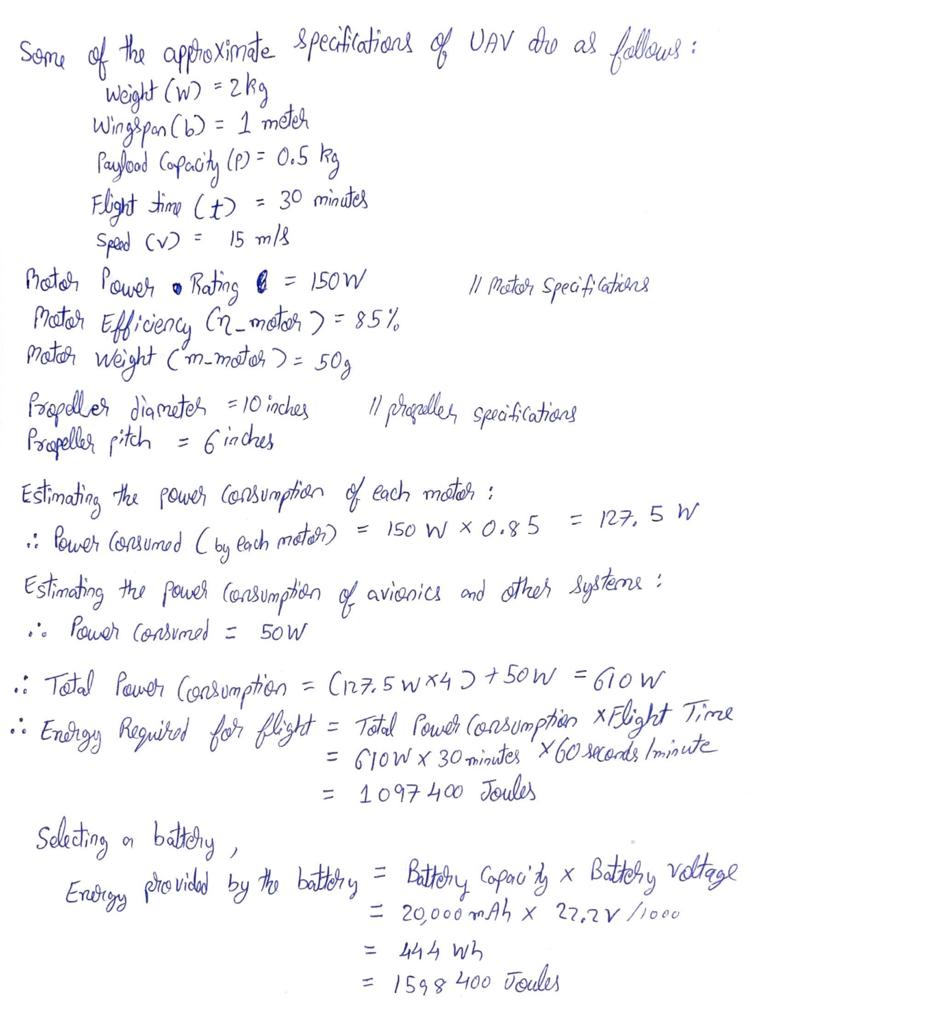 Some of the approximate specifications of UAV are as follows :
Weight (W) = 2kg
Wingspan (b) = 1 meter
Payload Capacity (P) = 0.5 kg
Flight time (t) = 30 minutes
Speed (v) = 15 m/s
Motor Power Rating = 150W // Motor Specifications
Motor Efficiency (η_motor) = 85%
Motor Weight (m_motor) = 50g
Propeller diameter = 10 inches // propeller specifications
Propeller pitch = 6 inches
Estimating the power consumption of each motor :
∴ Power Consumed (by each motor) = 150 W × 0.85 = 127.5 W
Estimating the power consumption of avionics and other systems :
∴ Power Consumed = 50W
∴ Total Power Consumption = (127.5 W×4) + 50W = 610 W
∴ Energy Required for flight = Total Power Consumption × Flight Time
= 610W × 30 minutes × 60 seconds/minute
= 1097400 Joules
Selecting a battery,
Energy provided by the battery = Battery Capacity × Battery voltage
= 20,000 mAh × 22.2V /1000
= 444 Wh
= 1598400 Joules